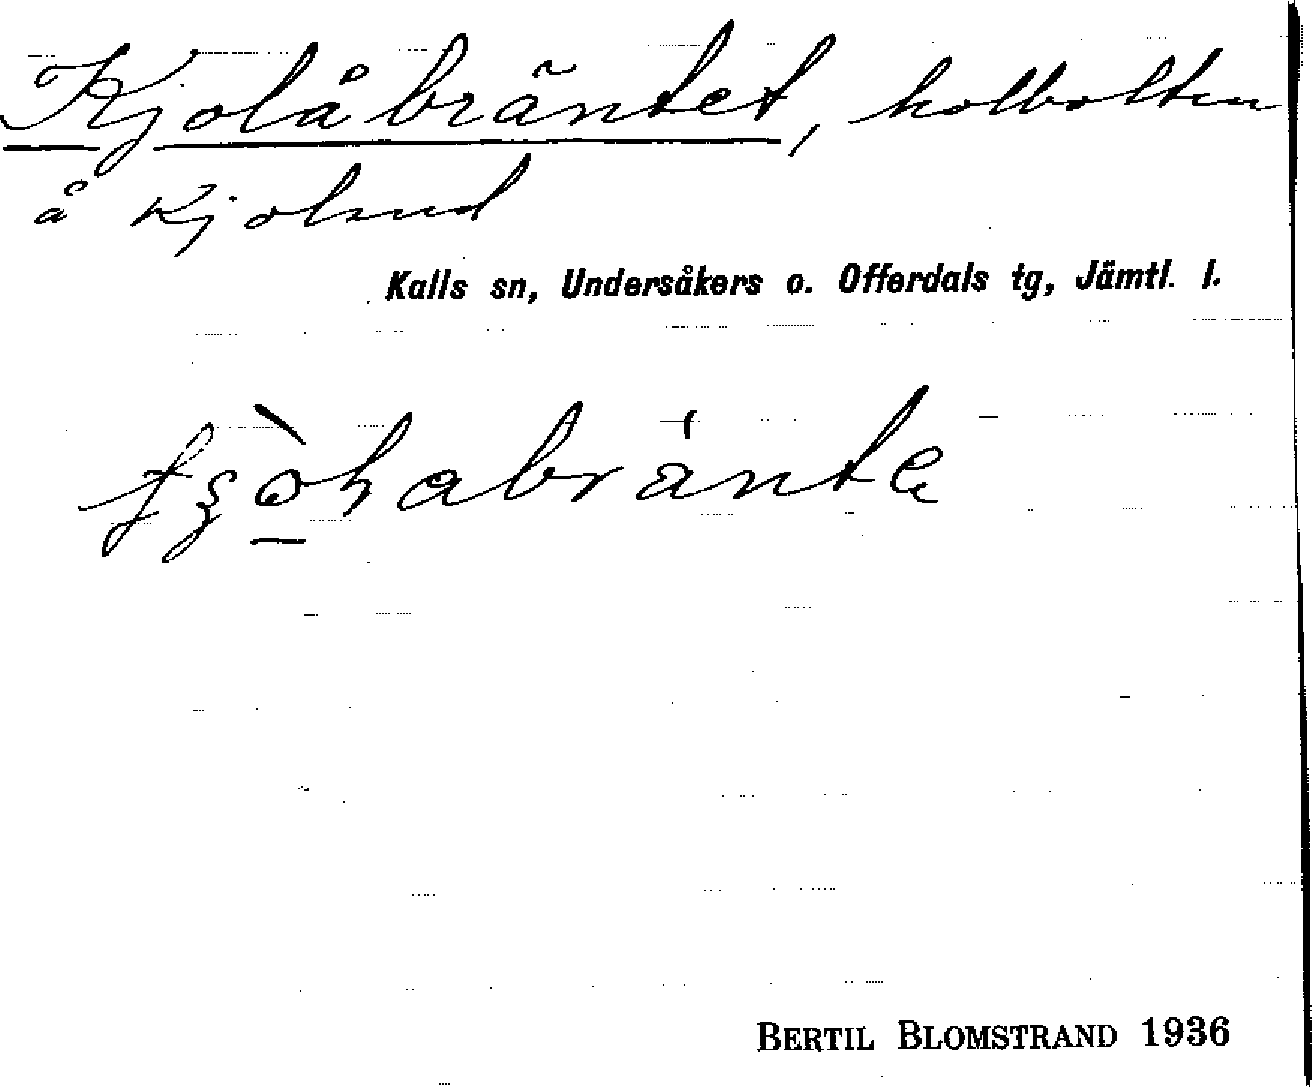 Kjolåbräntet, kolbotten
å Kjolsund
Kalls sn, Undersåkers o. Offerdals tg, Jämtl. l.
BERTIL BLOMSTRAND 1936